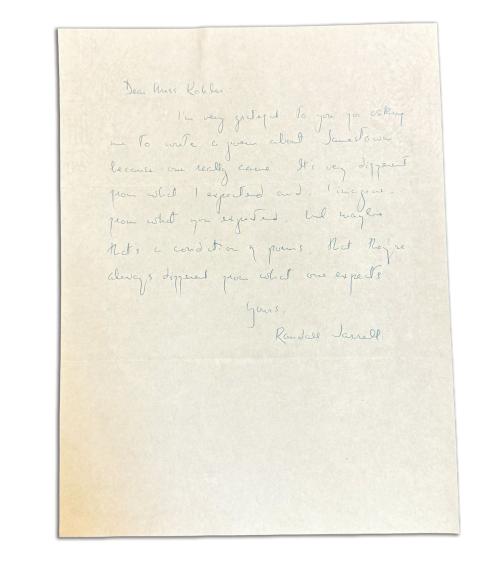 Dear Miss Kohler
I'm very grateful to you for asking
me to write a poem about Jamestown
because one really came. It's very different
from what I expected and, I imagine,
from what you expected, but maybe
that's a condition of poems, that they're
always different from what one expects
Yours,
Randall Jarrell